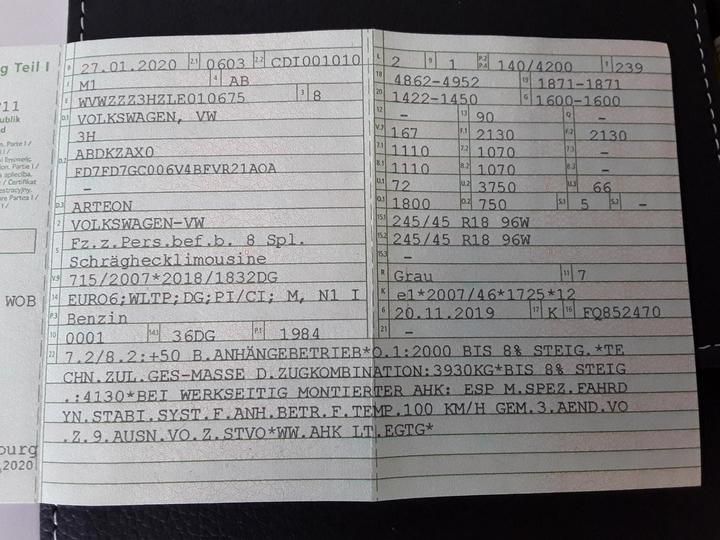 g Teil I
11
ublik
d
WOB
burg
2020
B 27.01.2020 2.1 0603 2.2 CDI001010
J M1 4 AB
E WVWZZZ3HZLE010675 3 8
D.1 VOLKSWAGEN, VW
3H
D.2 ABDKZAX0
FD7FD7GC006V4BFVR21AOA
–
D.3 ARTEON
2 VOLKSWAGEN-VW
5 Fz.z.Pers.bef.b. 8 Spl.
Schräghecklimousine
V.9 715/2007*2018/1832DG
14 EURO6;WLTP;DG;PI/CI; M, N1 I
P.3 Benzin
10 0001 14.1 36DG P.1 1984
L 2 9 1 P.2 P.4 140/4200 T 239
18 4862-4952 19 1871-1871
20 1422-1450 G 1600-1600
12 – 13 90 Q –
V.7 167 F.1 2130 F.2 2130
7.1 1110 7.2 1070 7.3 –
8.1 1110 8.2 1070 8.3 –
U.1 72 U.2 3750 U.3 66
O.1 1800 O.2 750 S.1 5 S.2 –
15.1 245/45 R18 96W
15.2 245/45 R18 96W
15.3 –
R Grau 11 7
K e1*2007/46*1725*12
6 20.11.2019 17 K 16 FQ852470
21 –
22 7.2/8.2:+50 B.ANHÄNGEBETRIEB*O.1:2000 BIS 8% STEIG.*TE
CHN.ZUL.GES-MASSE D.ZUGKOMBINATION:3930KG*BIS 8% STEIG
.:4130*BEI WERKSEITIG MONTIERTER AHK: ESP M.SPEZ.FAHRD
YN.STABI.SYST.F.ANH.BETR.F.TEMP.100 KM/H GEM.3.AEND.VO
.Z.9.AUSN.VO.Z.STVO*WW.AHK LT.EGTG*